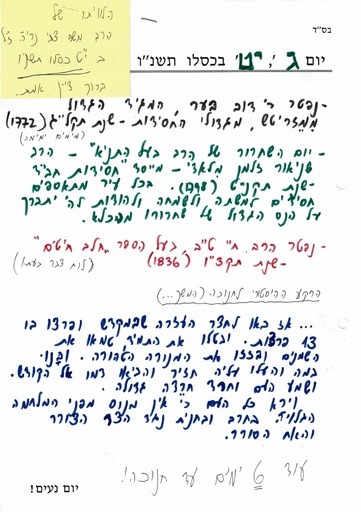 הלוויתו של
הרב משה צבי נריה זצ"ל
ב י"ט כסלו תשנ"ו
ברוך דיין אמת.
בס"ד
יום ג', י"ט בכסלו תשנ"ו
- נפטר ר' דוב בער, המגיד הגדול
ממזריטש, מגדולי החסידות - שנת תקל"ג (1772)
- יום השחרור של הרב בעל התניא - הרב
שניאור זלמן מלאדי - מייסד חסידות חב"ד
- שנת תקנ"ט (1798). בכל עיר מתאספים
חסידים למשתה ולשמחה ולהודות לה' יתברך
על הנס הגדול של שחרורו מהכלא.
- נפטר הרב ח"י ט"ב, בעל הספר "חלב חיטים"
- שנת תקצ"ו (1836) (לוח דבר בעתו)
הרקע ההיסטורי לחנוכה (המשך...)
... אז באו לחצר העזרה שבמקדש ופרצו בו
13 פרצות. וביטלו את התמיד, טמאו את
השמנים ובזזו את המנורה הטהורה. ובנו
במה והעלו עליה חזיר והביאו דמו אל הקודש.
ושמע העם וחרד חרדה גדולה.
וירא כל העם כי אין מנוס מפני המלחמה
הגלויה. בחרב ובחנית נגד הצד הצורר
והאח הסורר.
עוד 6 ימים עד חנוכה!
יום נעים!